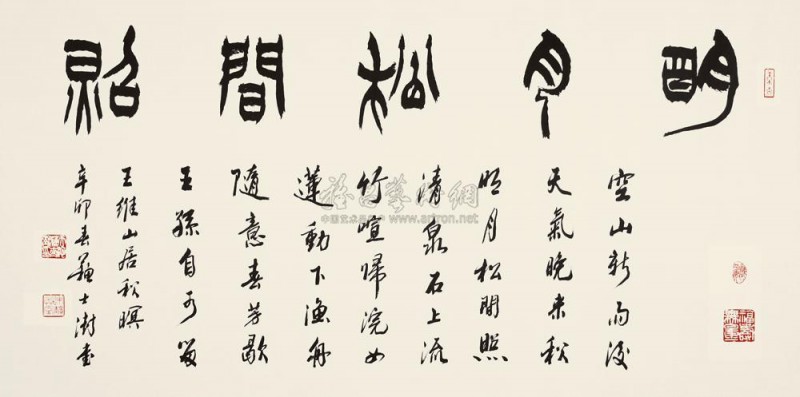 明月松間照
空山新雨後
天氣晚来秋
明月松間照
清泉石上流
竹喧歸浣女
蓮動下漁舟
隨意春芳歇
王孫自可留
王維山居秋暝
辛卯春蘇士澍書
www.artron.net